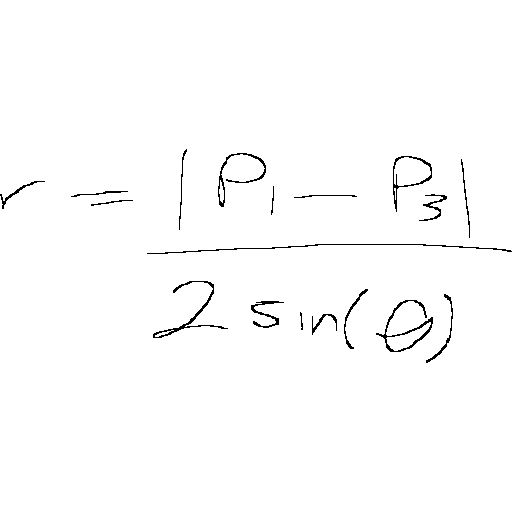 r = |P₁ − P₃| / 2 sin(θ)